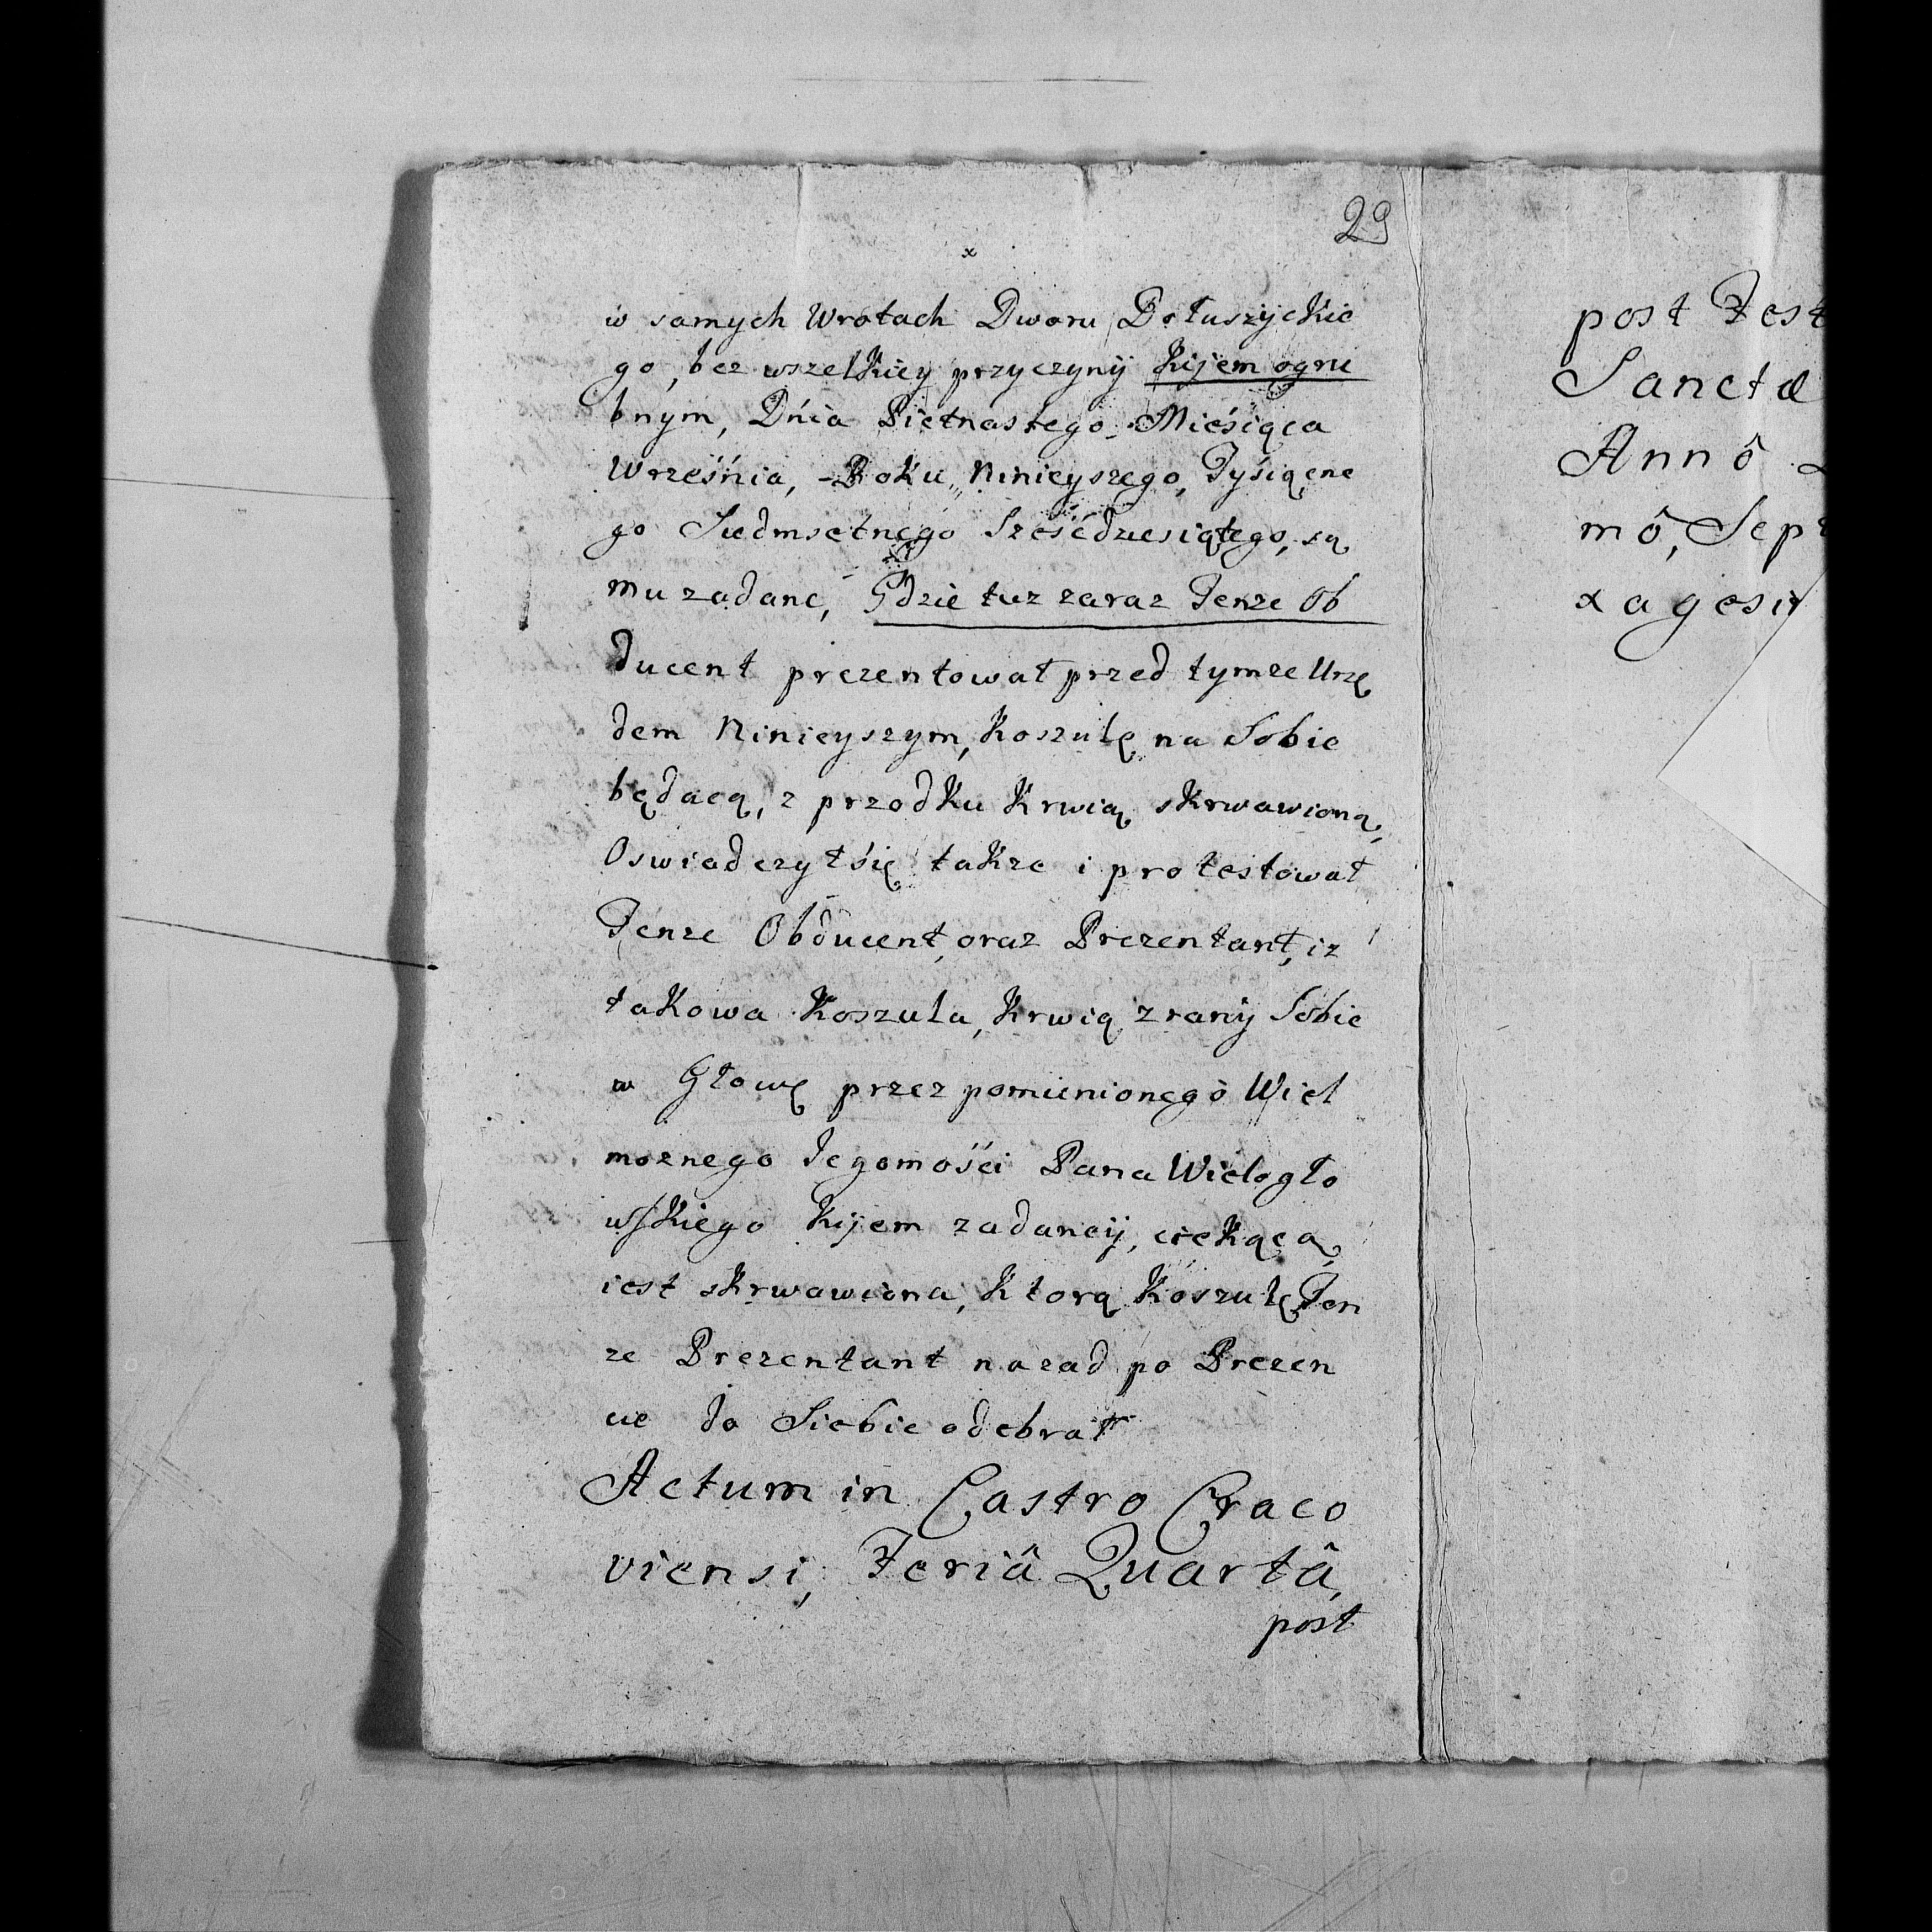 29
x
w samych Wrotach Dworu Dołuszyckie
go, bez wszelkiey przyczyny kijem ogru
bnym, Dnia Pietnastego Miesiąca
Września, Roku Ninieyszego, Tysiącne
go Siedmsetnego Sześćdziesiątego, są
mu zadane, Gdzie tuz zaraz Tenze Ob
ducent prezentował przed tymze Urzę
dem Ninieyszym, Koszulę na Sobie
będącą, z przodku Krwią skrwawioną,
Oswiadczył się takze i protestował
Tenze Obducent, oraz Prezentant, iz
takowa Koszula, Krwią z rany Sobie
w Głowę przez pomienionego Wiel
moznego Jegomości Pana Wielogło
wskiego Kijem zadaney, ciekącą,
iest skrwawiona, Ktorą Koszulę Ten
ze Prezentant nazad po Prezen
cie do Siebie odebrał
Actum in Castro Craco
viensi, Feriâ Quartâ,
post
post Fest
Sanctæ
Annô
mô, Sept
xagesi